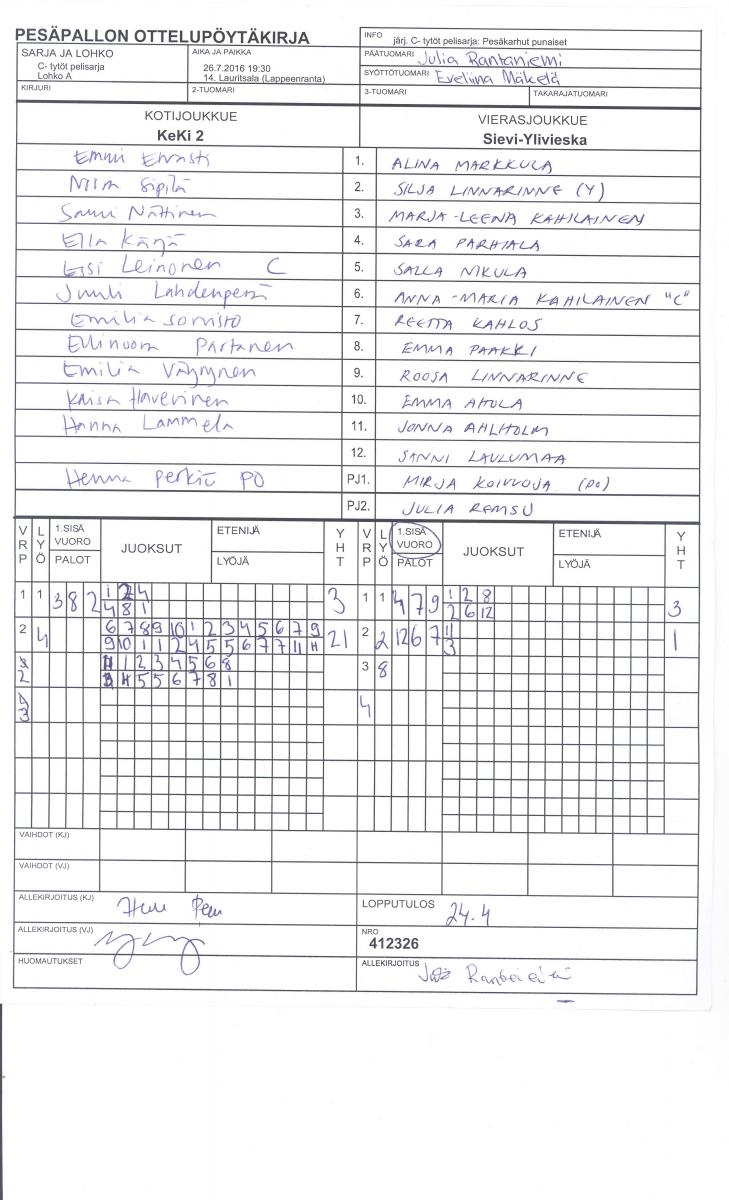 PESÄPALLON OTTELUPÖYTÄKIRJA
INFO järj. C- tytöt pelisarja: Pesäkarhut punaiset
SARJA JA LOHKO
C- tytöt pelisarja
Lohko A
AIKA JA PAIKKA
26.7.2016 19:30
14. Lauritsala (Lappeenranta)
PÄÄTUOMARI Julia Rantaniemi
SYÖTTÖTUOMARI Eveliina Mäkelä
KIRJURI
2-TUOMARI
3-TUOMARI
TAKARAJATUOMARI
KOTIJOUKKUE
KeKi 2
VIERASJOUKKUE
Sievi-Ylivieska
Emmi Ervasti 1. ALINA MARKKULA
Niina Sipilä 2. SILJA LINNARINNE (Y)
Sanni Nättinen 3. MARJA-LEENA KAHILAINEN
Ella Kärjä 4. SARA PARHIALA
Essi Leinonen C 5. SALLA NIKULA
Juuli Lahdenperä 6. ANNA-MARIA KAHILAINEN "C"
Emilia Sornisto 7. REETTA KAHLOS
Ellinoora Partanen 8. EMMA PAAKKI
Emilia Väyrynen 9. ROOSA LINNARINNE
Kaisa Haverinen 10. EMMA AHOLA
Hanna Lammela 11. JONNA AHLHOLM
12. SANNI LAULUMAA
Henna Perkiö PO PJ1. MIRJA KOIVUOJA (PO)
PJ2. JULIA REMSU
VRP LYÖ 1.SISÄ VUORO PALOT JUOKSUT ETENIJÄ LYÖJÄ YHT VRP LYÖ 1.SISÄ VUORO PALOT JUOKSUT ETENIJÄ LYÖJÄ YHT
1 1 3 8 2 1 2 4 3 1 1 4 7 9 1 2 8 3
4 8 1 2 6 12
2 4 6 7 8 9 10 1 2 3 4 5 6 7 9 21 2 2 12 6 7 11 1
9 10 1 1 2 4 5 5 6 7 7 11 H 3
2 H 1 2 3 4 5 6 8 3 8
H 5 5 6 7 8 1
3 4
VAIHDOT (KJ)
VAIHDOT (VJ)
ALLEKIRJOITUS (KJ)
LOPPUTULOS 24-4
ALLEKIRJOITUS (VJ)
NRO
412326
HUOMAUTUKSET
ALLEKIRJOITUS